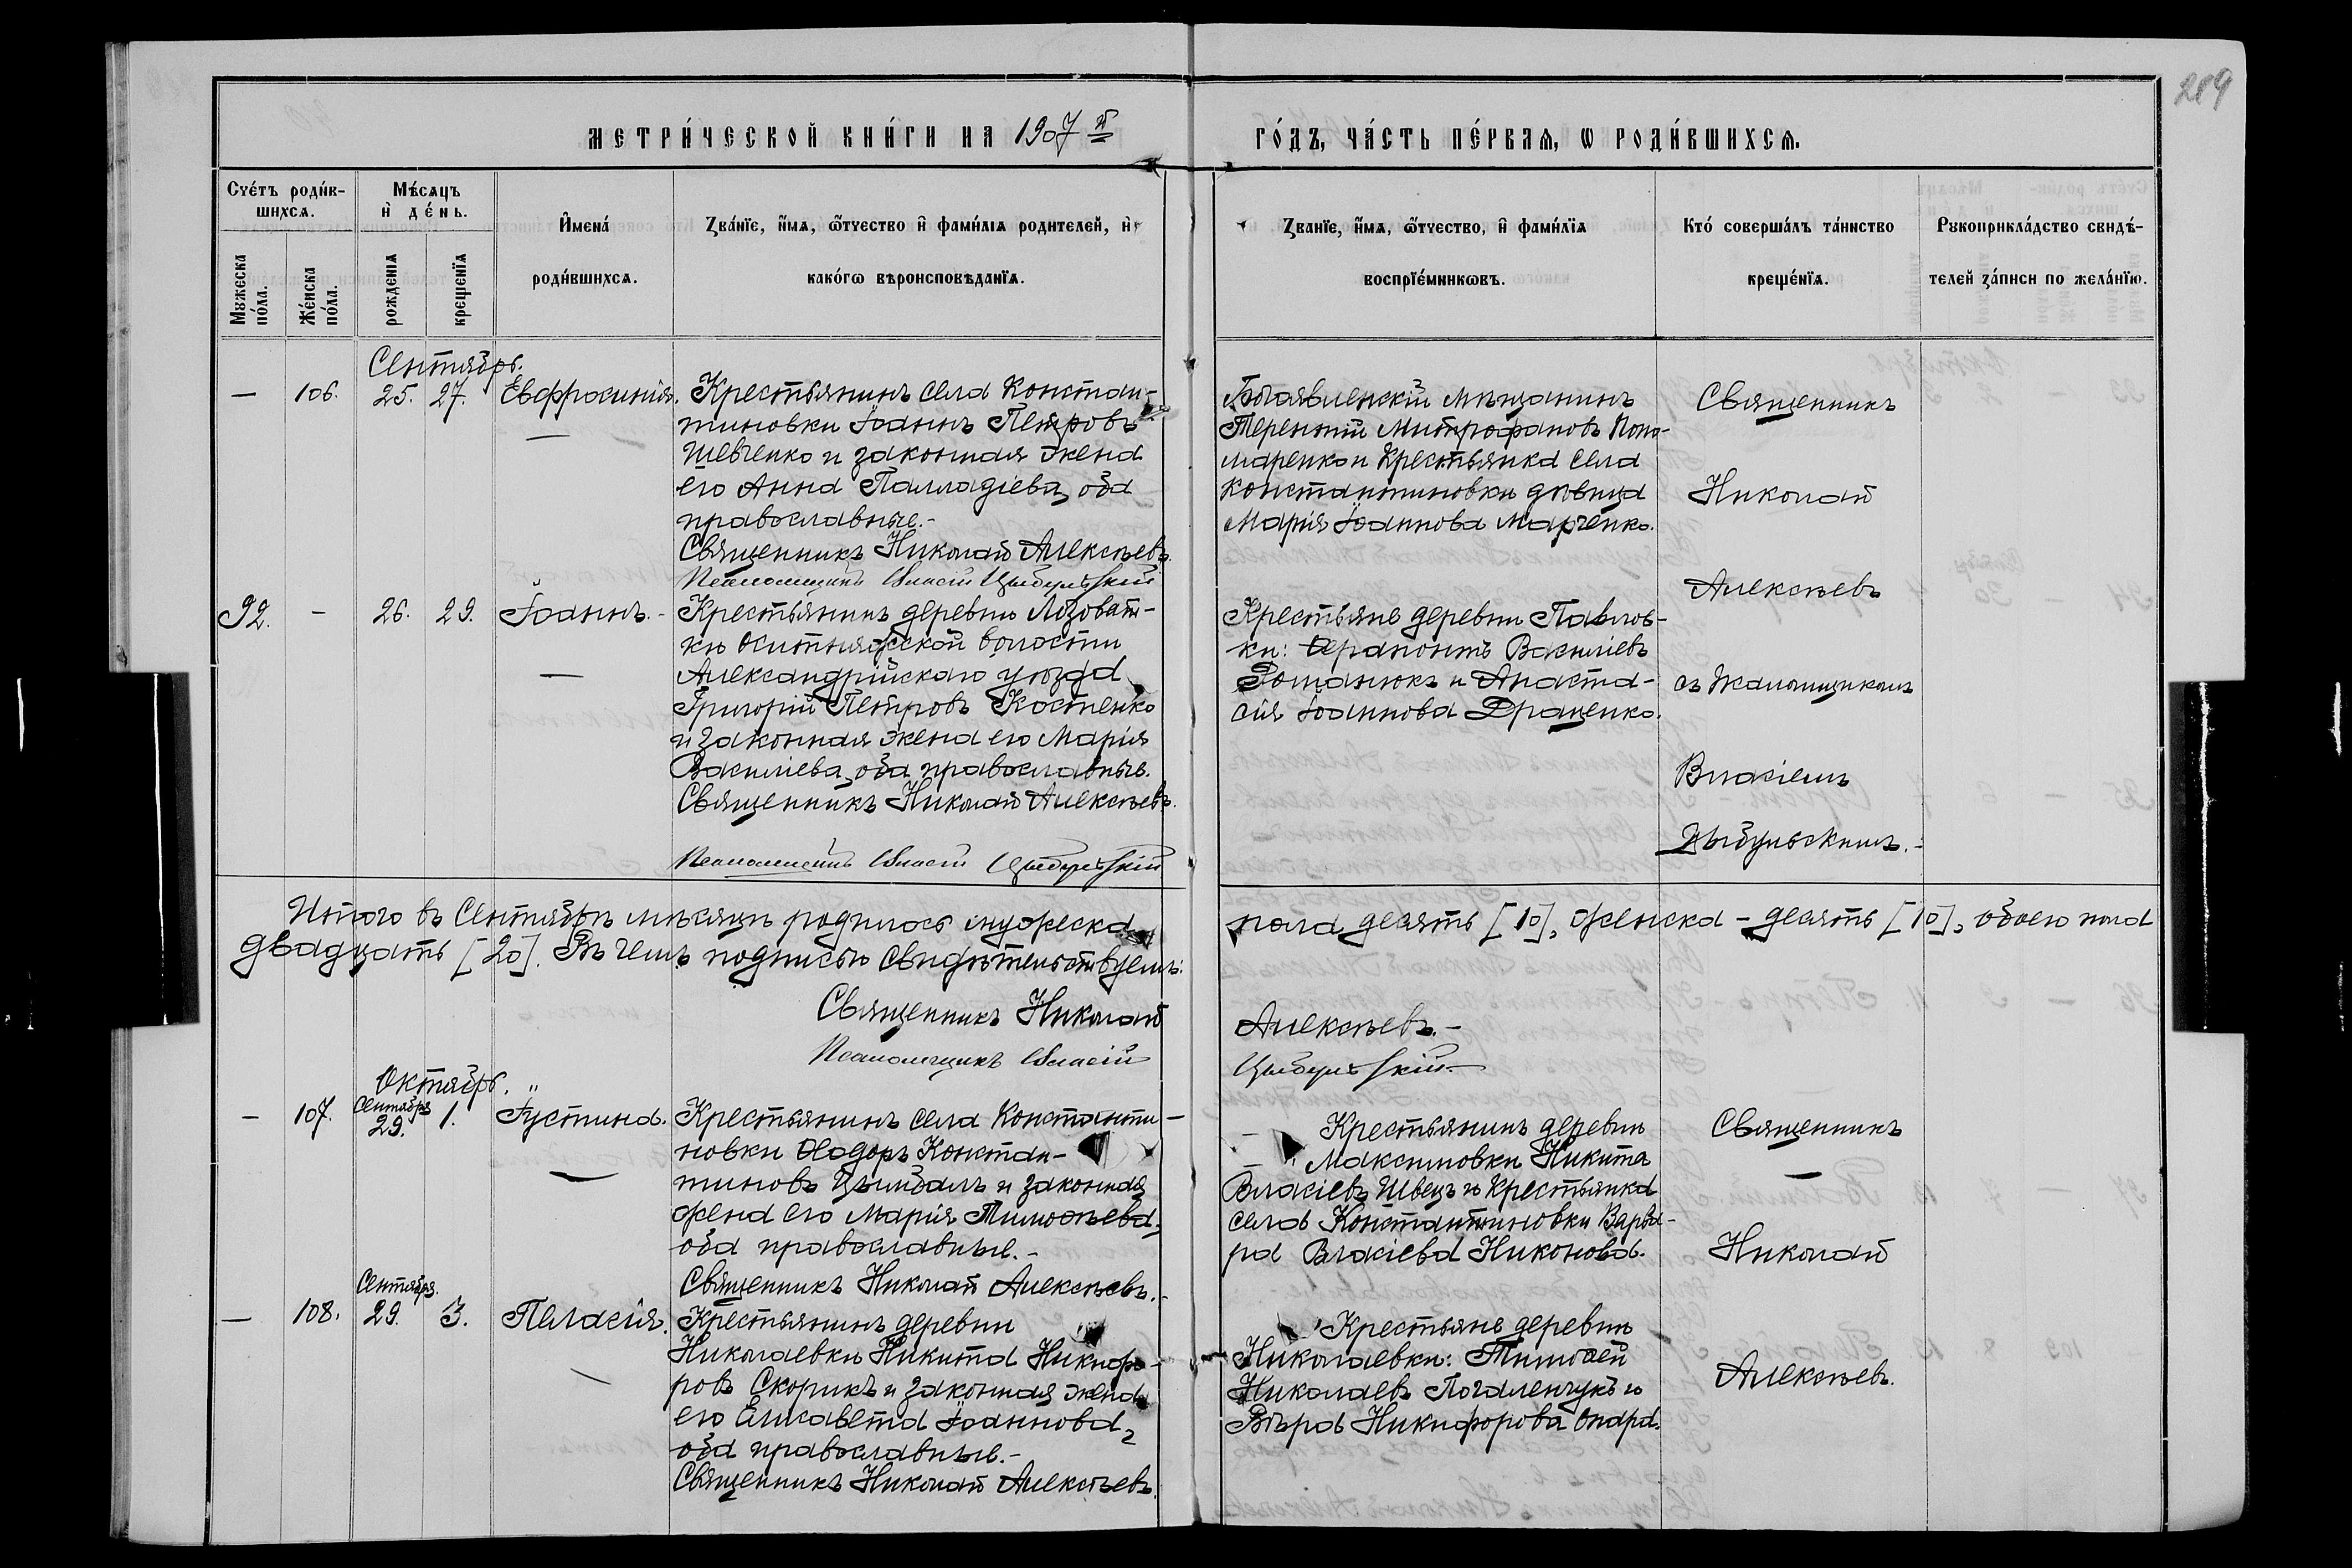 289
МЕТРИ́ЧЕСКОЙ КНИ́ГИ НА 1907 й ГО́ДЪ, ЧА́СТЬ ПЕ́РВАѦ, Ѡ РОДИ́ВШИХСѦ.
Сче́тъ роди́в-
шихсѧ.
Мѣ́сѧцъ
и҆ де́нь.
И҆мена́
роди́вшихсѧ.
Зва́нїе, и҆́мѧ, ѻ҆́тчество и҆ фами́лїѧ родителей, и҆
како́гѡ вѣроисповѣ́данїѧ.
Званїе, и҆́мѧ, ѻ҆́тчество, и҆ фами́лїѧ
воспрїе́мникѡвъ.
Кто́ соверша́лъ та́инство
креще́нїѧ.
Рꙋкоприкла́дство свидѣ́-
телей за́писи по жела́нїю.
Мꙋжеска
по́ла.
Же́нска
по́ла.
рожденїѧ
крещенїѧ
Сентябрь.
— 106. 25. 27. Евфросинія.
Крестьянинъ села Констан-
тиновки Іоаннъ Петровъ
Шевченко и законная жена
его Анна Палладіева, оба
православные.-
Священникъ Николай Алексѣевъ.
Псаломщикъ Власій Цыбульскій
Богоявленскій мѣщанинъ
Терентій Митрофановъ Поно-
маренко и Крестьянка села
Константиновки дѣвица
Марія Іоаннова Марченко.
Священникъ
Николай
Алексѣевъ
съ Псаломщикомъ
Власіемъ
Цыбульскимъ.-
92. - 26. 29. Іоаннъ.-
Крестьянинъ деревни Лозоват-
ки Оситняжской волости
Александрійскаго уѣзда
Григорій Петровъ Костенко
и законная жена его Марія
Василіева, оба православные.
Священникъ Николай Алексѣевъ.
Псаломщикъ Власій Цыбульскій
Крестьяне деревни Павлов-
ки: Ѳерапонтъ Василіевъ
Романюкъ и Анаста-
сія Іоаннова Драценко.
Итого въ Сентябрѣ мѣсяцѣ родилось мужеска пола десять [10], женска - десять [10], обоего пола
двадцать [20]. Въ чемъ подписью свидѣтельствуемъ:
Священникъ Николай Алексѣевъ.-
Псаломщикъ Власій Цыбульскій.-
Октябрь.
- 107. Сентября 29. 1. Іустина.
Крестьянинъ села Константи-
новки Ѳеодоръ Констан-
тиновъ Цымбалъ и законная
жена его Марія Тимоѳеева,
оба православные.-
Священникъ Николай Алексѣевъ.-
Крестьянинъ деревни
Максимовки Никита
Власіевъ Швецъ и Крестьянка
села Константиновки Варва-
ра Власіева Никонова.
Священникъ
Николай
Алексѣевъ.
— 108. Сентября. 29. 3. Пелагія.
Крестьянинъ деревни
Николаевки Никита Никифо-
ровъ Скорикъ и законная жена
его Елисавета Іоаннова,
оба православные.-
Священникъ Николай Алексѣевъ.
Крестьяне деревни
Николаевки: Тимоѳей
Николаевъ и
Вѣра Никифорова